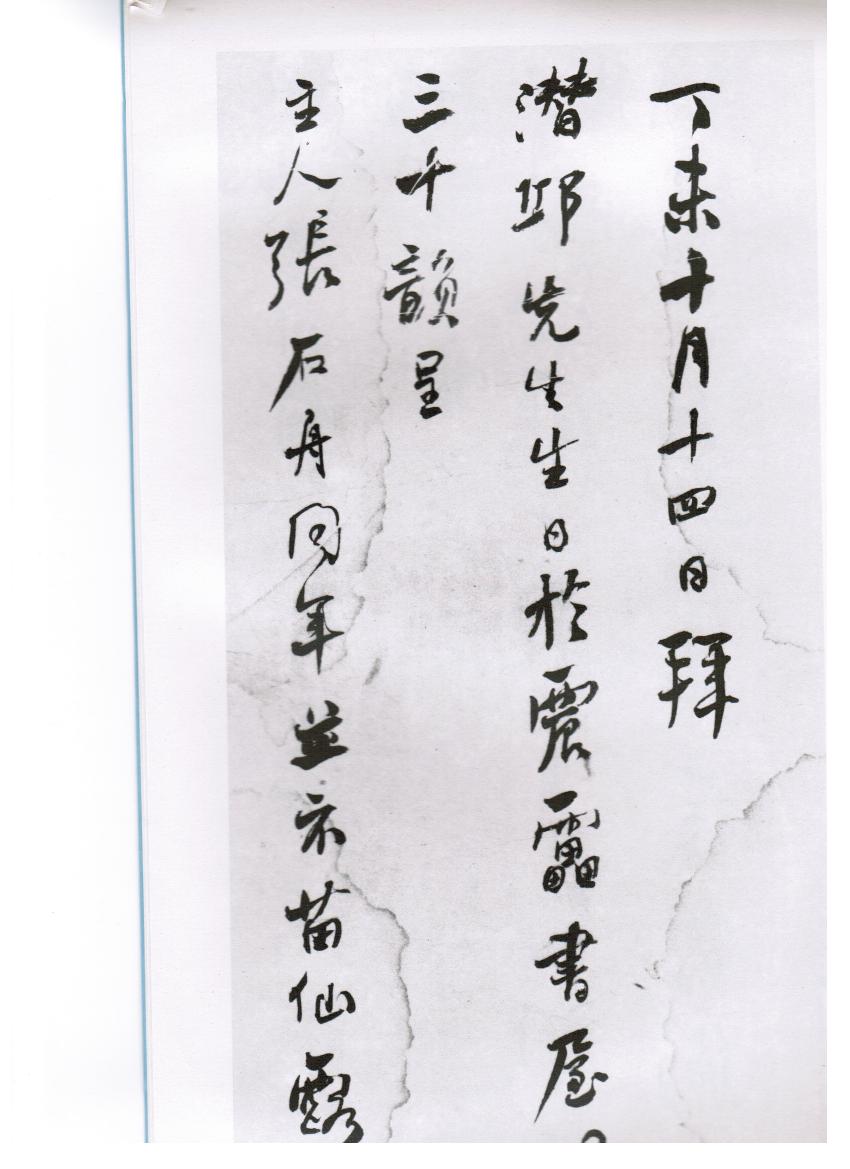 丁未十月十四日拜
潛邱先生生日於震靁書屋
三十韻呈
主人張石舟同年並示苗仙露